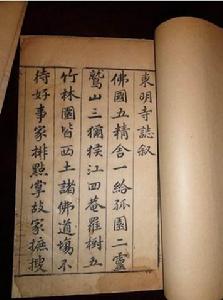 東明寺誌叙
佛國五精舍一給孤園二靈
鷲山三獼猴江四菴羅樹五
竹林園皆西土諸佛道場不
待好事家排點掌故家摭搜